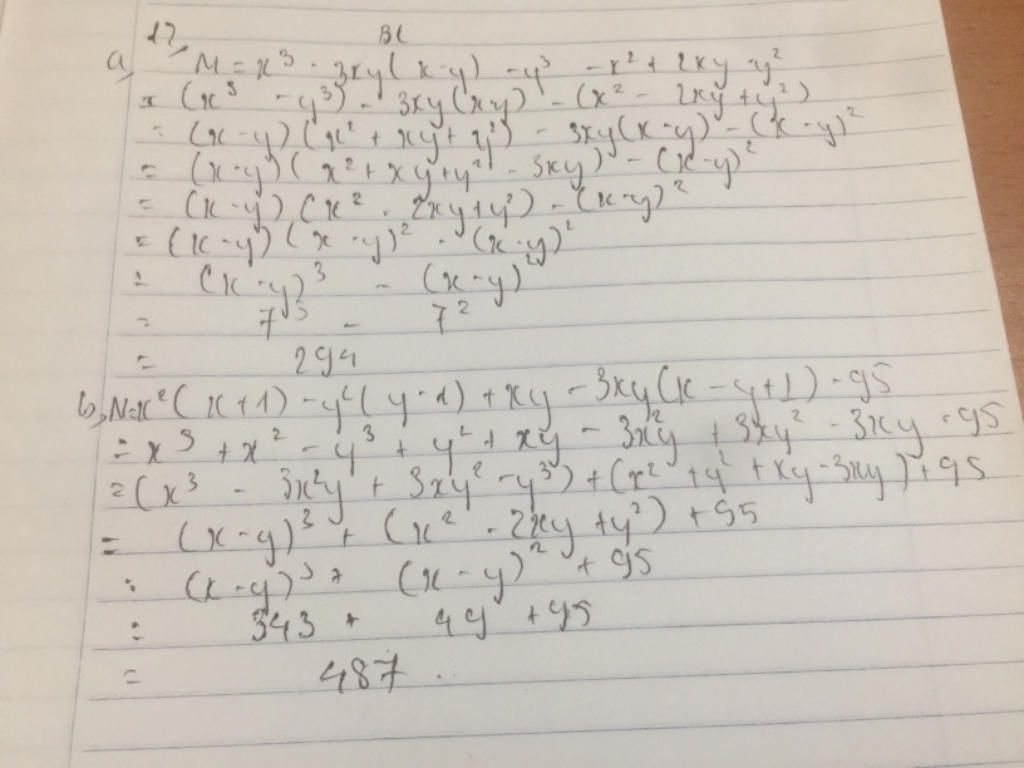 17, BL
a, M = x³ - 3xy(x-y) - y³ - x² + 2xy - y²
= (x³ - y³) - 3xy(xy) - (x² - 2xy + y²)
= (x-y)(x² + xy + y²) - 3xy(x-y) - (x-y)²
= (x-y)(x² + xy + y² - 3xy) - (x-y)²
= (x-y)(x² - 2xy + y²) - (x-y)²
= (x-y)(x-y)² - (x-y)²
= (x-y)³ - (x-y)²
= 7³ - 7²
= 294
b, N = x²(x+1) - y²(y-1) + xy - 3xy(x-y+1) - 95
= x³ + x² - y³ + y² + xy - 3x²y + 3xy² - 3xy - 95
= (x³ - 3x²y + 3xy² - y³) + (x² + y² + xy - 3xy) + 95
= (x-y)³ + (x² - 2xy + y²) + 95
= (x-y)³ + (x-y)² + 95
= 343 + 49 + 95
= 487.